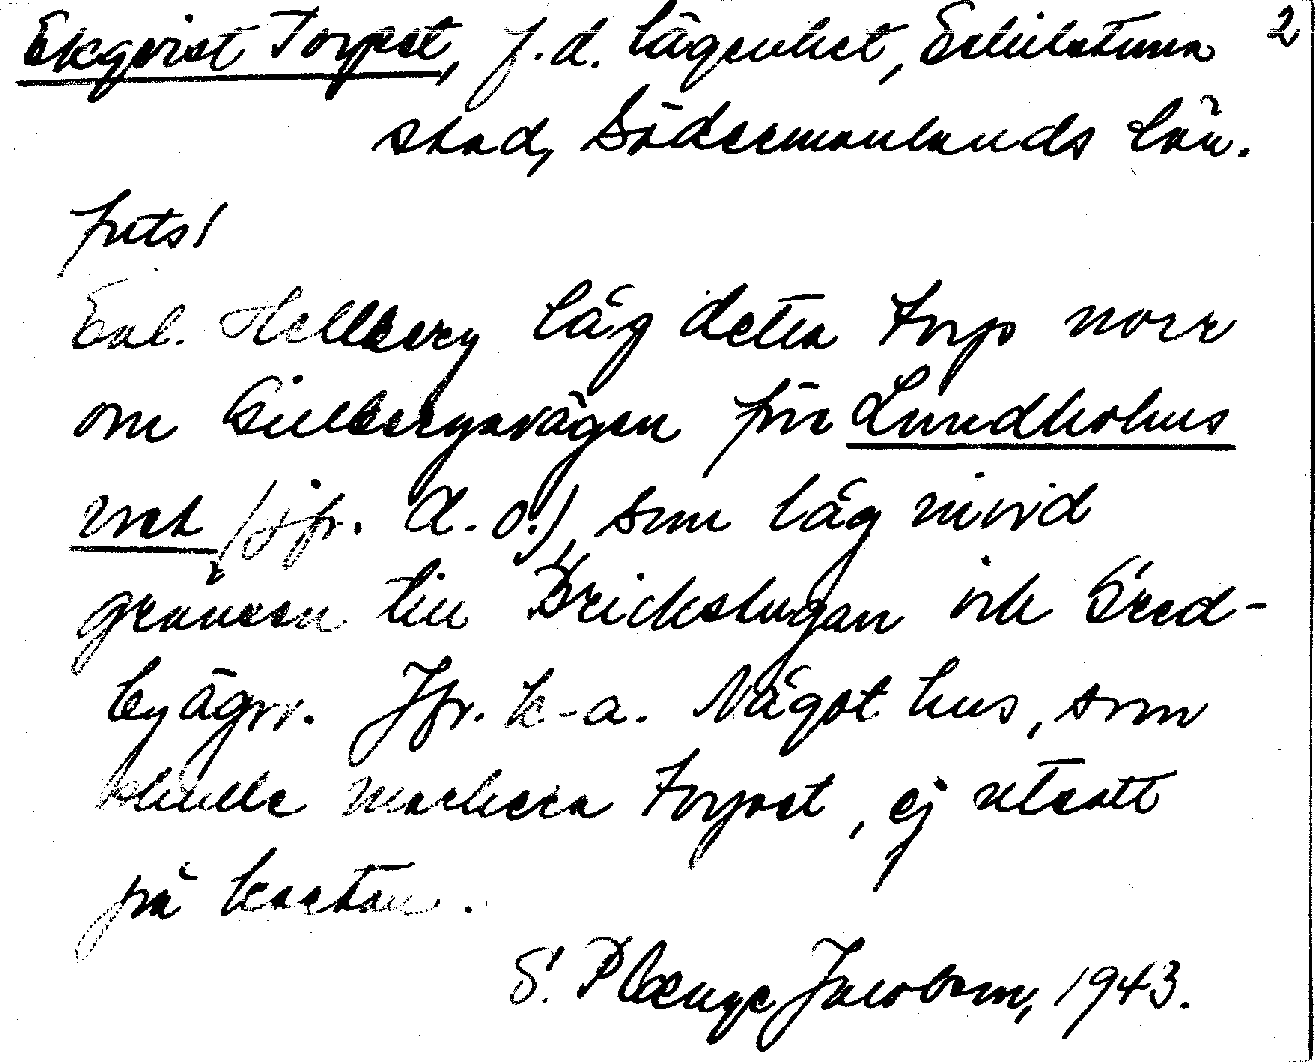 Ekqvist Torpet, f.d. lägenhet, Eskilstuna 2
stad, Södermanlands län.
forts!
Enl. Hellberg låg detta torp norr
om Gillbergavägen för Lundbohus
vret (jfr. d. o.), som låg invid
gränsen till Brickstugan och Sred-
byägor. Jfr. k-a. Något hus, som
skulle markera Torpet, ej utsatt
på kartan.
S. Plenge Jacobson, 1943.